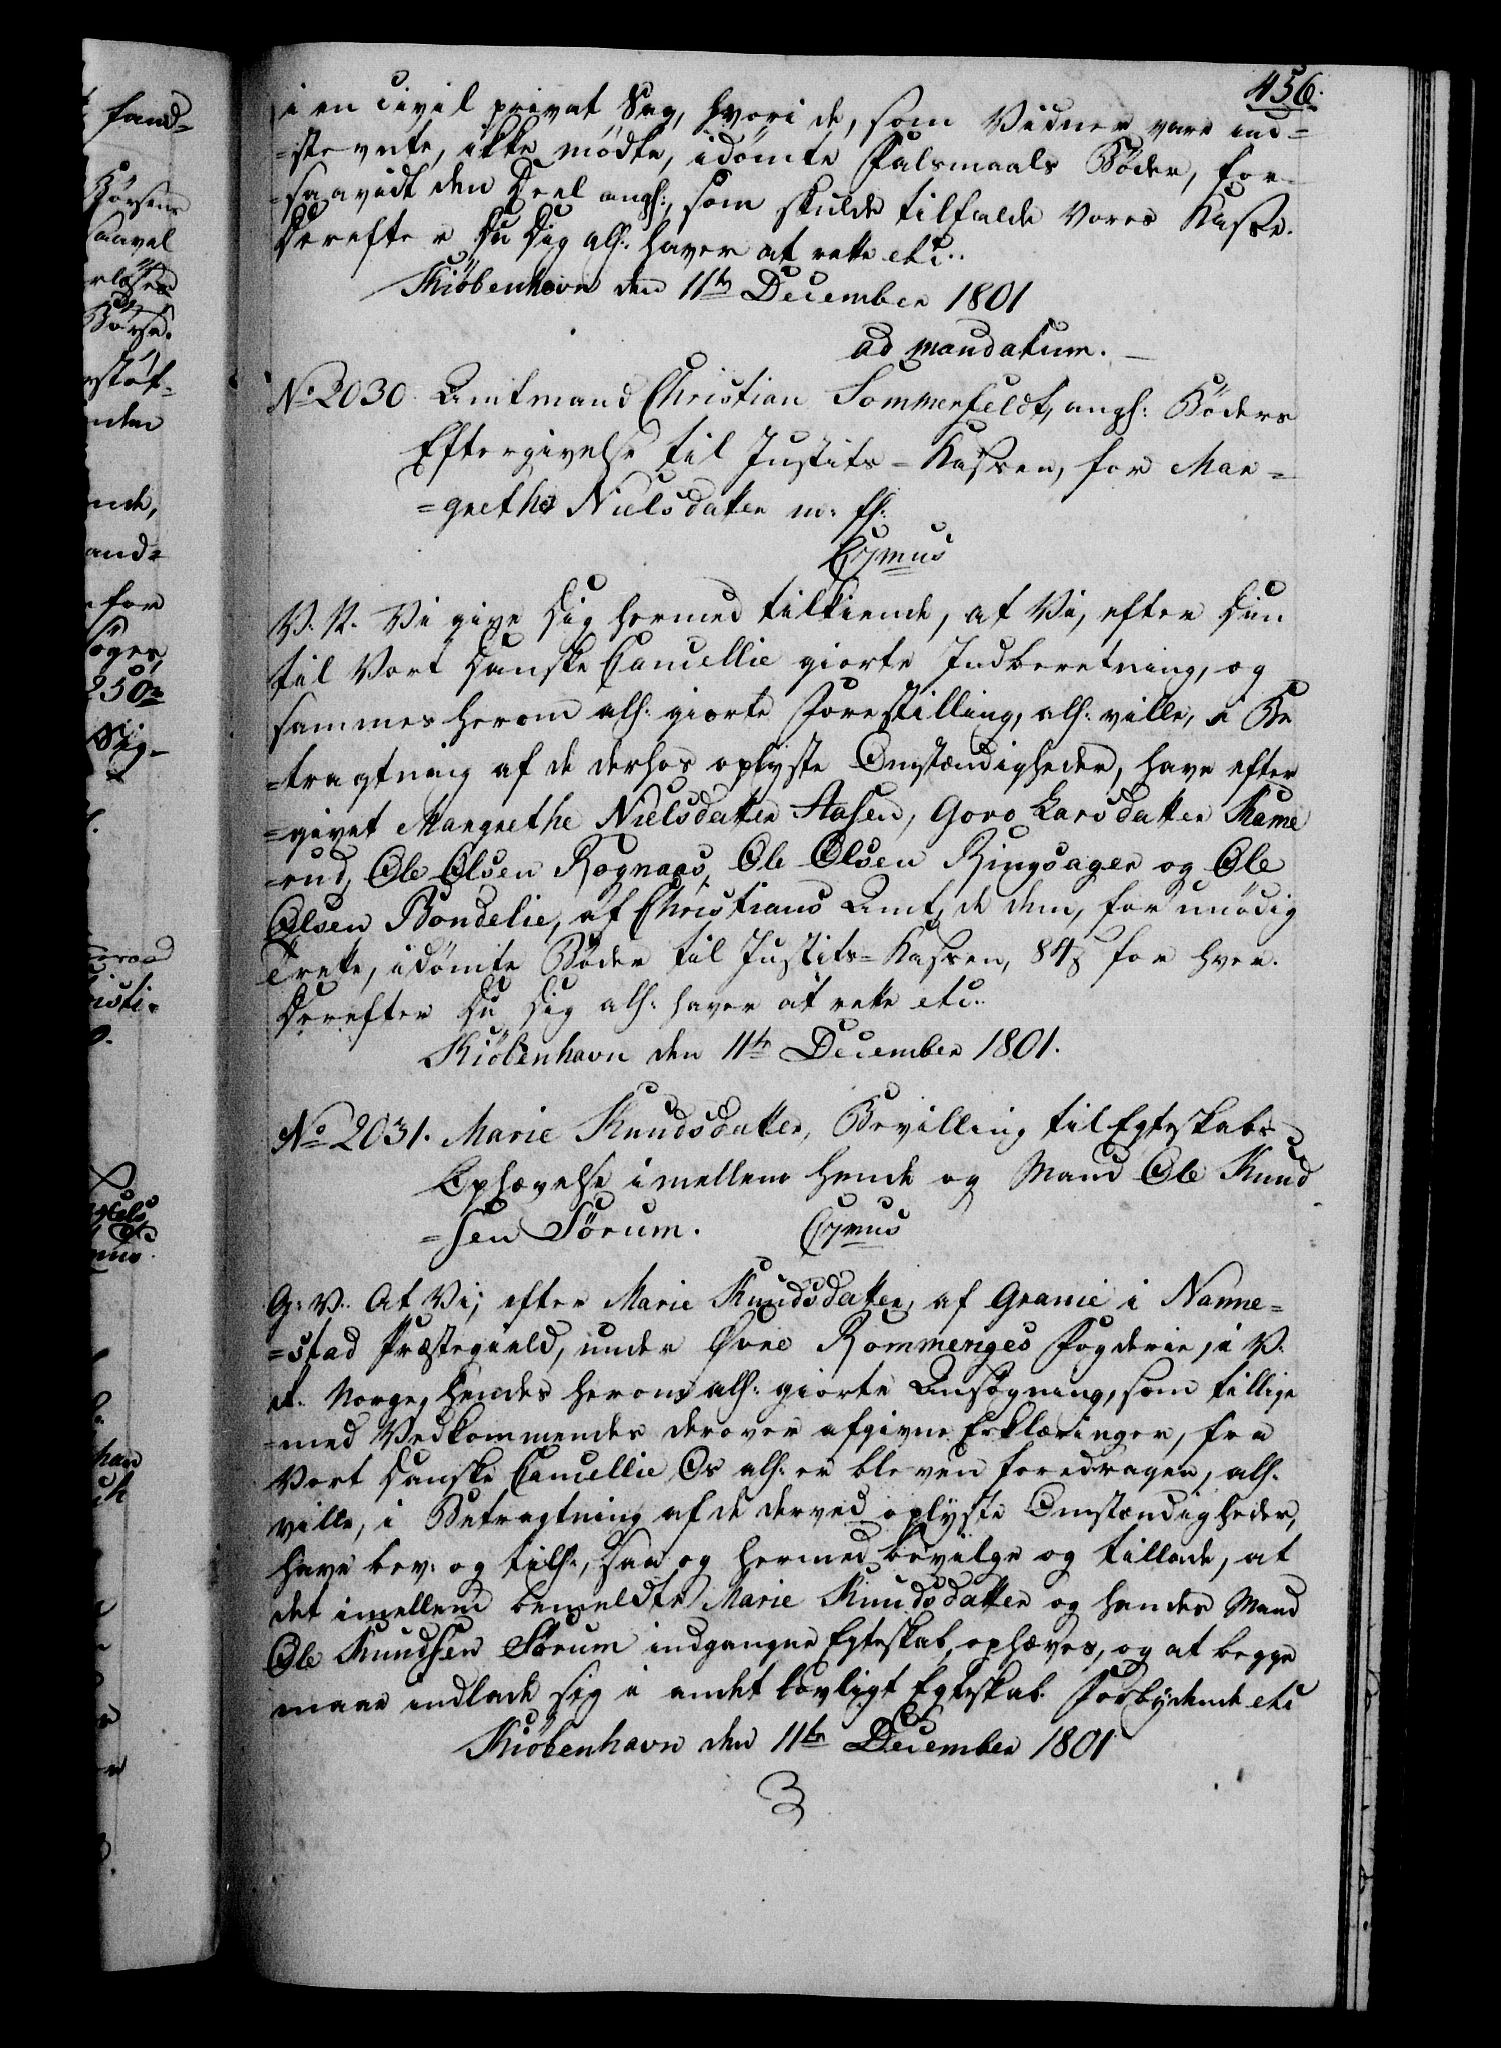 456.
i en civil privat Sag, hvori de, som Vidner vare ind=
=stevnte, ikke mødte, idømte Falsmaals Bøder, for-
=saavidt den Deel angl:, som skulde tilfalde Vores Kasse.
Derefter Du Dig all: haver at rette etc..
Kiöbenhavn den 11te December 1801
ad mandatum. —
No 2030. Amtmand Christian Sommerfeldt, angl: Bøders
Eftergivelse til Justits=Kassen, for Mar=
=grethe Nielsdatter m: fl:
V. N. Vi give Dig hermed tilkiende, at Vi, efter Din
til Vort Danske Cancellie giorte Indberetning, og
sammes herom all: giorte Forestilling, all: ville, i Be
=tragtning af de derhos oplyste Omstændigheder, have efter
=givet Margrethe Nielsdatter Aasen, Goro Larsdatter Kame
=rud, Ole Olsen Rognaas, Ole Olsen Ringsager og Ole
Olsen Bondelie, af Christians Amt, de dem, for unødig
Trette, idømte Bøder til Justits=Kassen, 84 ß for hver.
Derefter Du Dig all: haver at rette etc..
Kiöbenhavn den 11te December 1801.
No 2031. Marie Knudsdatter, Bevilling til Egteskabs
Ophævelse imellem hende og Mand Ole Knud
=sen Sörum.
G: V. At Vi, efter Marie Knudsdatter, af Granie i Nanne=
=stad Præstegield, under Øvre Rommeriges Fogderie, i V.
et. Norge, hendes herom all: giorte Ansøgning, som tillige
=med Vedkommendes derover afgivne Erklæringer, fra
Vort Danske Cancellie Os all: er bleven foredragen, all:
ville, i Betragtning af de derved oplyste Omstændigheder,
have bev: og till:, saa og hermed bevilge og tillade, at
det imellem bemeldte Marie Knudsdatter og hendes Mand
Ole Knudsen Sørum indgangne Egteskab, ophæves, og at begge
maae indlade sig i andet lovligt Egteskab. Forbydende etc
Kiöbenhavn den 11te December 1801